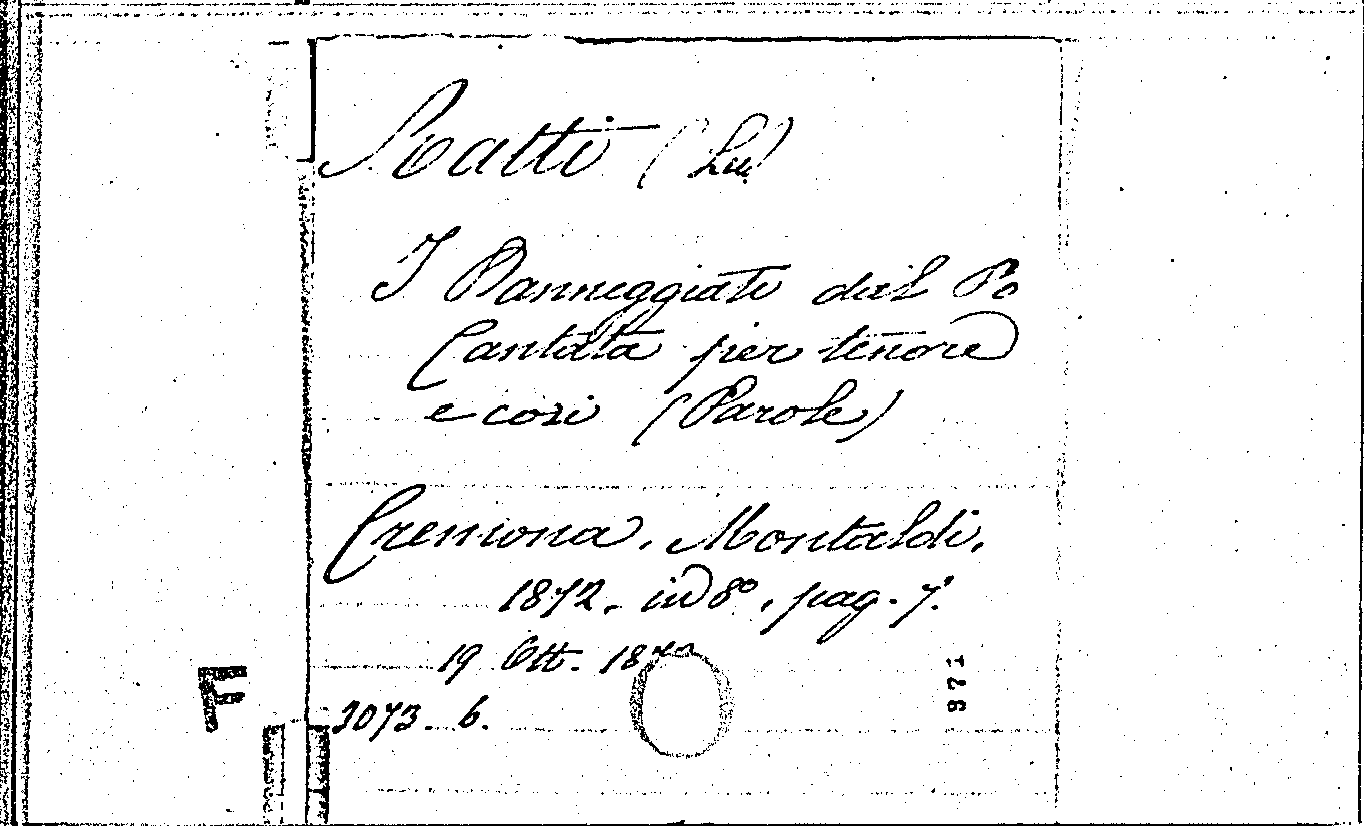 Ratti (Lu.)
I Danneggiati dal Po
Cantata per tenore
e cori (Parole)
Cremona, Montaldi,
1872. in 8°, pag. 7.
19 Ott. 1872
3073. 6.
F
971